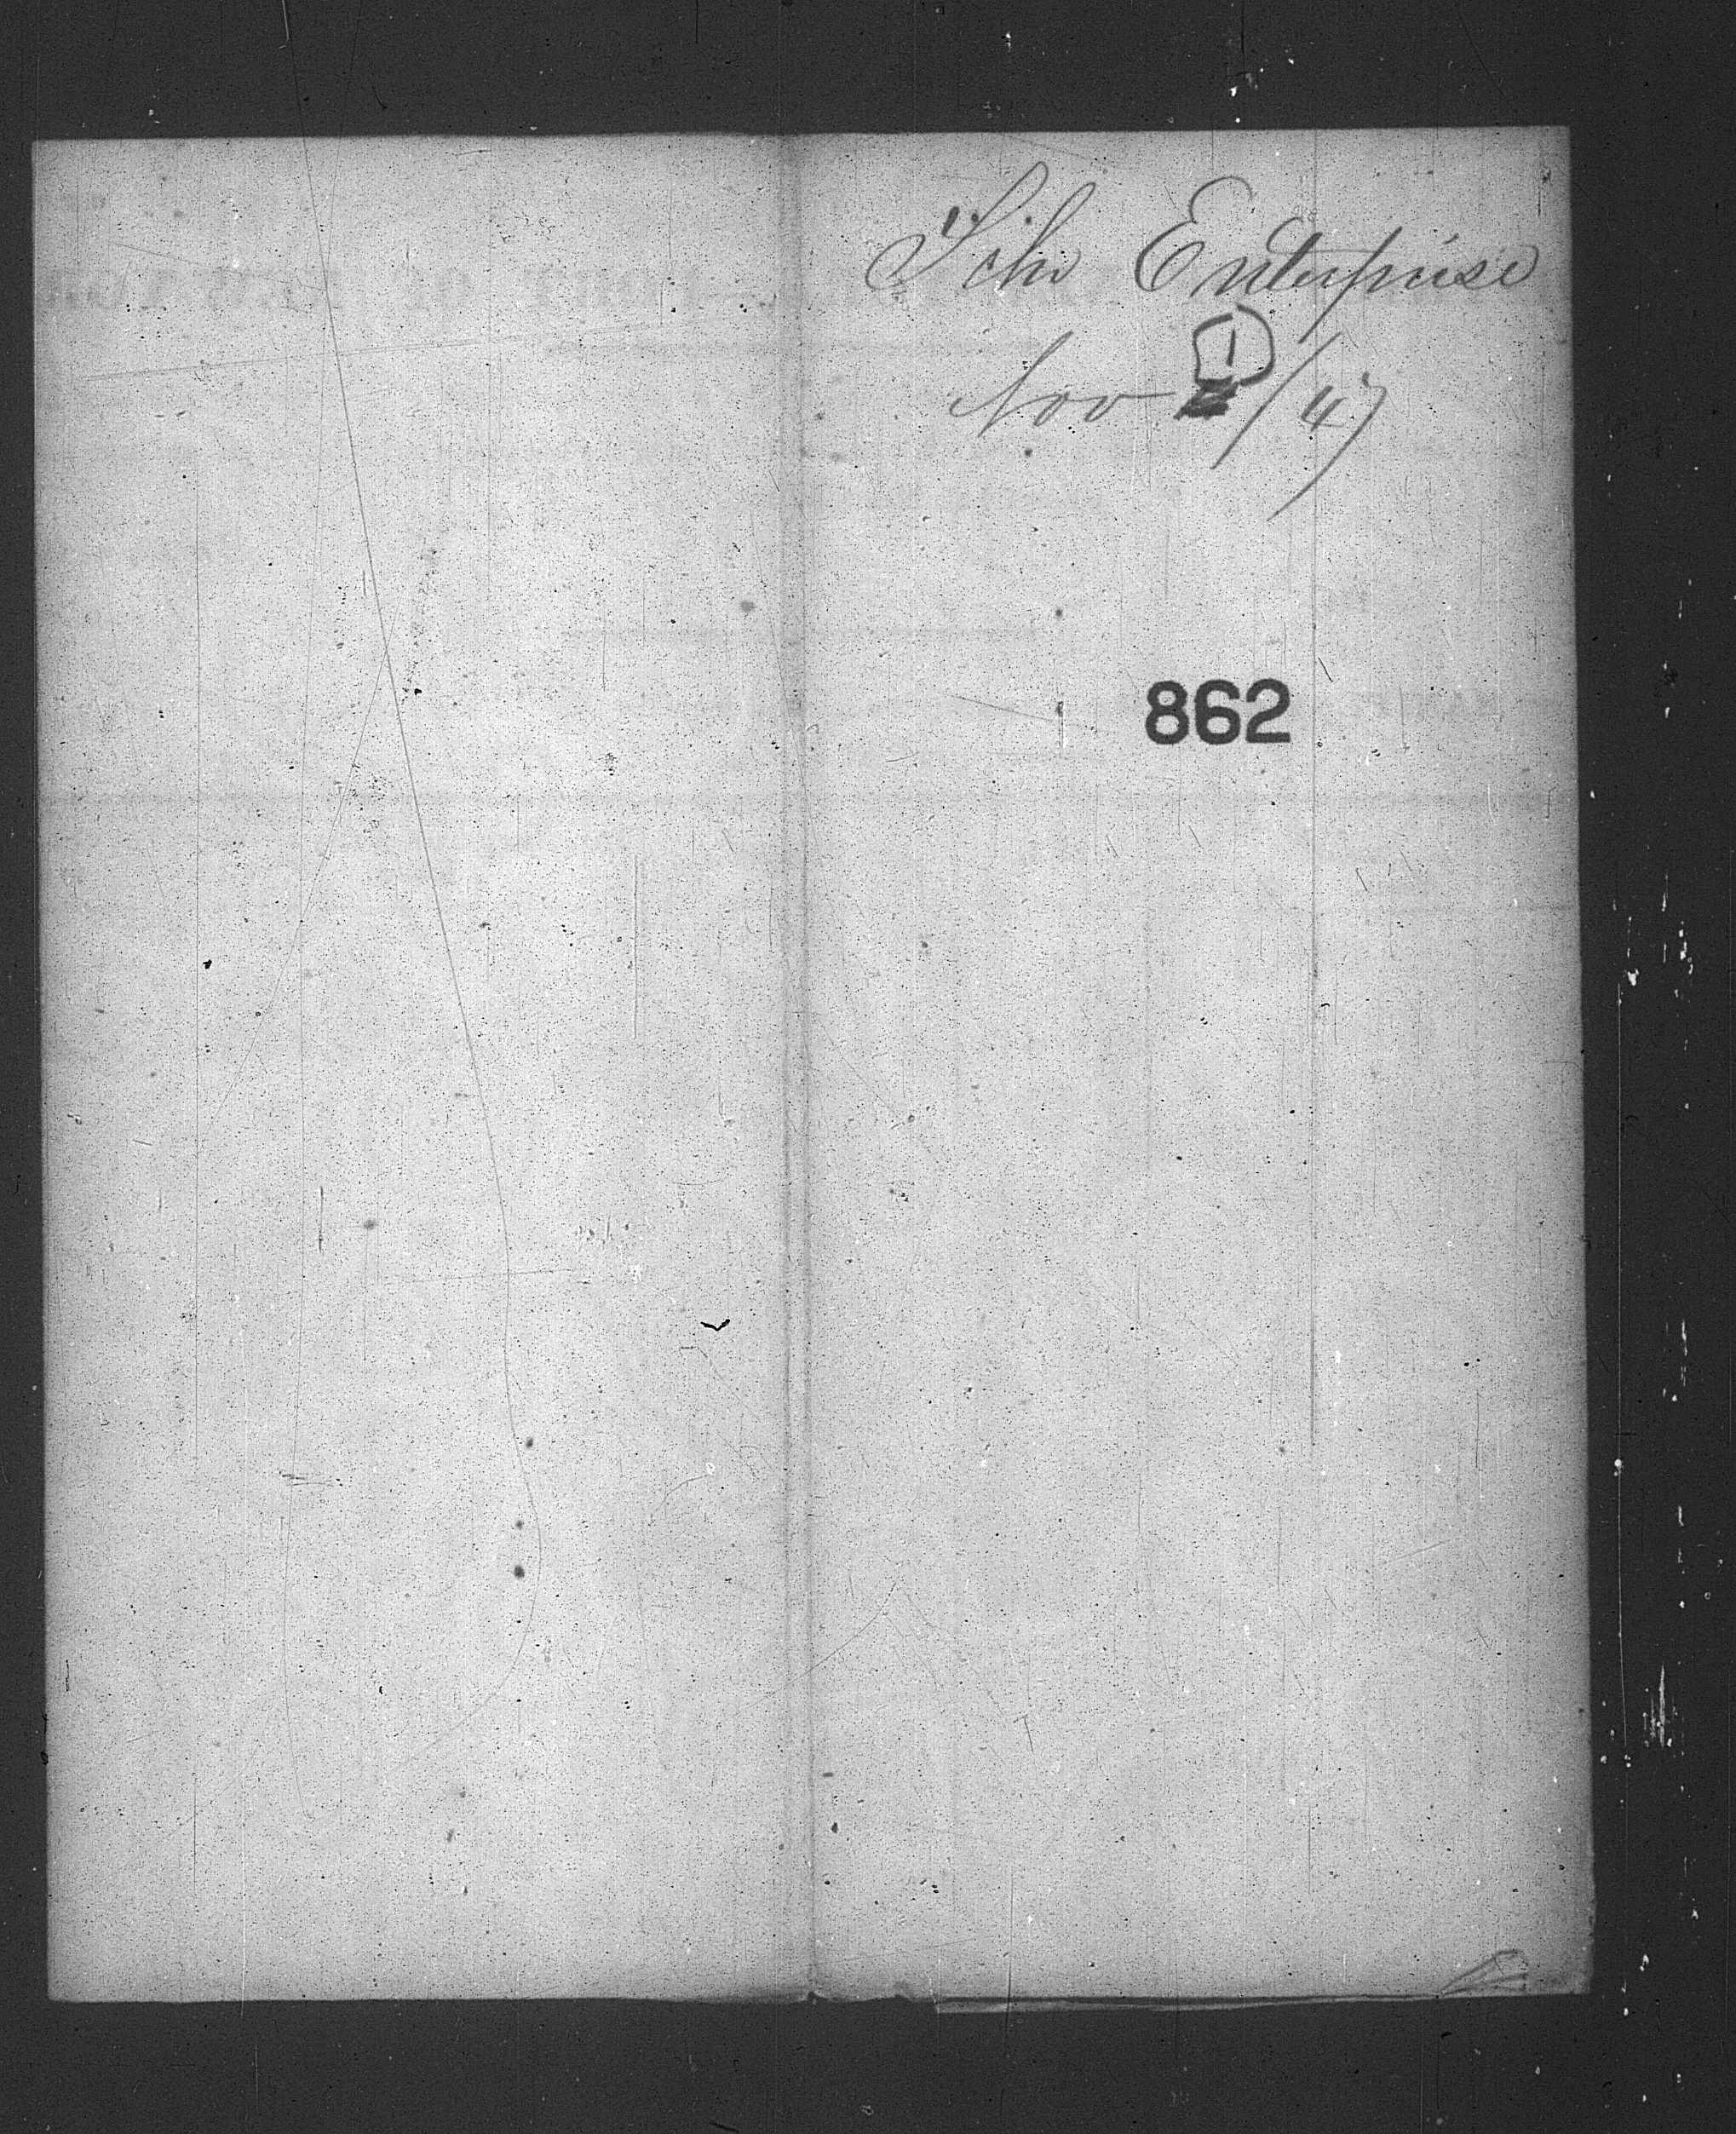 Schr Enterprise
Nov 1/47
862